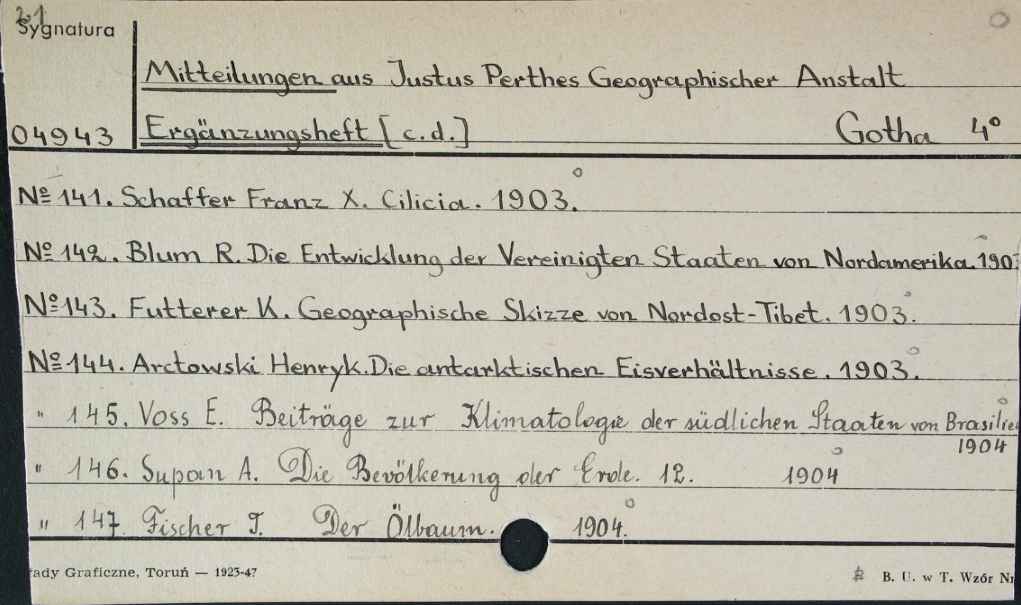 21
Sygnatura
Mitteilungen aus Justus Perthes Geographischer Anstalt
04943 Ergänzungsheft [c.d.] Gotha 4°
№ 141. Schaffer Franz X. Cilicia. 1903.
№ 142. Blum R. Die Entwicklung der Vereinigten Staaten von Nordamerika. 190
№ 143. Futterer K. Geographische Skizze von Nordost-Tibet. 1903.
№ 144. Arctowski Henryk. Die antarktischen Eisverhältnisse. 1903.
" 145. Voss E. Beiträge zur Klimatologie der südlichen Staaten von Brasilie
1904
" 146. Supan A. Die Bevölkerung der Erde. 12. 1904
" 147. Fischer T. Der Ölbaum. 1904.
ady Graficzne, Toruń — 1923-47 B. U. w T. Wzór Nr